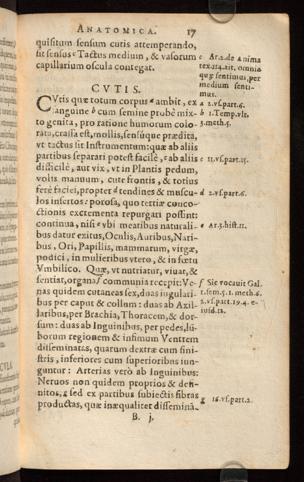 ANATOMICA. 17
quisitum sensum cutis attemperando,
sit sensus c Tactus medium, & vasorum
capillarium oscula contegat.
c Ar. 2. de anima
tex. 114. xit. omnia
quę sentimus, per
medium senti-
mus.
CVTIS.
CVtis quæ totum corpus a ambit, ex
sanguine b cum semine probè mix-
to genita, pro ratione humorum colo-
rata, crassa est, mollis, sensúque prædita,
vt tactus sit Instrumentum: quæ ab aliis
partibus separari potest facilè, c ab aliis
difficilè, aut vix, vt in Plantis pedum,
volis manuum, cute frontis, & totius
ferè faciei, propter d tendines & muscu-
los insertos: porosa, quo tertiæ conco-
ctionis excrementa repurgari possint:
continua, nisi e vbi meatibus naturali-
bus datur exitus, Oculis, Auribus, Nari-
bus, Ori, Papillis, mammarum, virgæ,
podici, in mulieribus vtero, & in fœtu
Vmbilico. Quæ, vt nutriatur, viuat, &
sentiat, organa f communia recepit: Ve-
nas quidem cutaneas sex, duas iugulari-
bus per caput & collum: duas ab Axil-
laribus, per Brachia, Thoracem, & dor-
sum: duas ab Inguinibus, per pedes, lū-
borum regionem & infimum Ventrem
disseminatas, quarum dextræ cum sini-
stris, inferiores cum superioribus iun-
guntur: Arterias verò ab Inguinibus:
Neruos non quidem proprios & defi-
nitos, g sed ex partibus subiectis fibras
productas, quæ inæqualiter disseminā-
a 2. vs. part. 6.
b 1. Temp. vlt.
2. meth. 5.
c 11. vs. part. 15.
d 2. vs. part. 6.
e Ar. 3. hist. 11.
f Sic vocauit Gal.
1. sem. 5. 1. meth. 6.
2. vs. part. 19. 4. e-
iusd. 12.
g 16. vs. part. 2.
B. j.